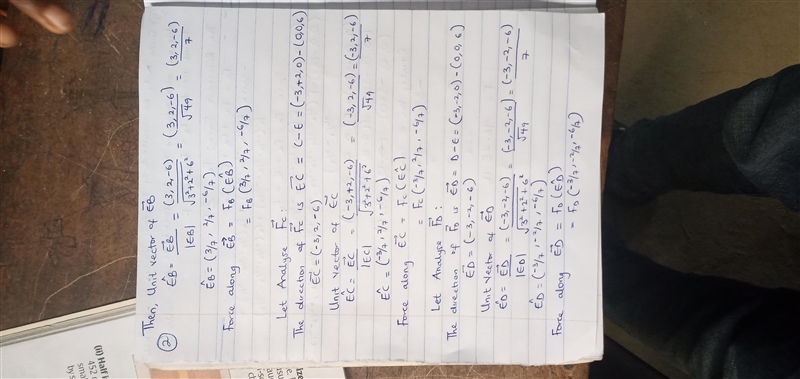 ② Then, Unit vector of EB⃗
ÊB = EB⃗ / |EB| = (3, 2, -6) / √3²+2²+6² = (3, 2, -6) / √49 = (3, 2, -6) / 7
ÊB = (3/7, 2/7, -6/7)
Force along EB⃗ = F_B (ÊB)
= F_B (3/7, 2/7, -6/7)
Let Analyse F⃗c:
The direction of F⃗c is EC⃗ = C-E = (-3,+2,0)-(0,0,6)
EC⃗ = (-3, 2, -6)
Unit vector of EC⃗
ÊC = EC⃗ / |EC| = (-3,+2,-6) / √3²+2²+6² = (-3,2,-6) / √49 = (-3,2,-6) / 7
ÊC = (-3/7, 2/7, -6/7)
Force along EC⃗ = Fc (ÊC)
= Fc (-3/7, 2/7, -6/7)
Let Analyse F⃗D:
The direction of F⃗D is ED⃗ = D-E = (-3,-2,0) - (0,0,6)
ED⃗ = (-3, -2, -6)
Unit vector of ED⃗
ÊD = ED⃗ / |ED| = (-3,-2,-6) / √3²+2²+6² = (-3,-2,-6) / √49 = (-3,-2,-6) / 7
ÊD = (-3/7, -2/7, -6/7)
Force along ED⃗ = F_D (ÊD)
= F_D (-3/7, -2/7, -6/7)
(ii) Half
452
by